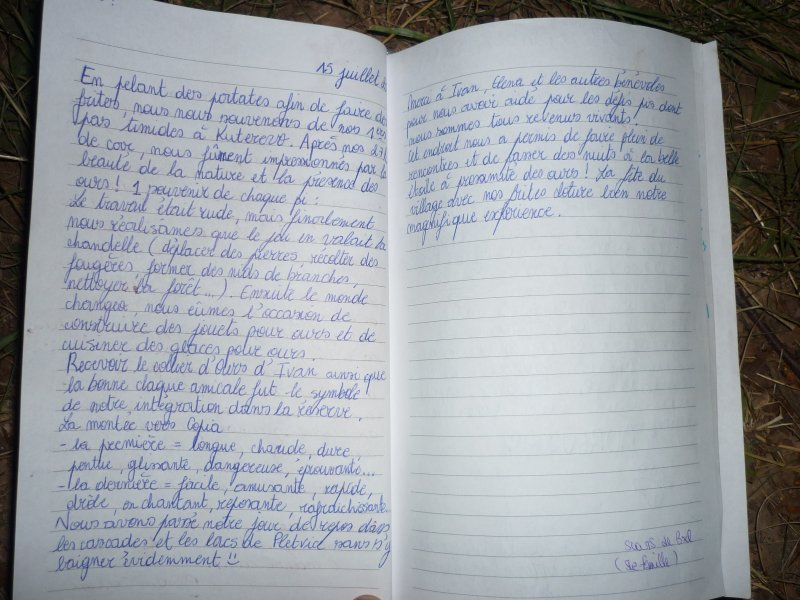 15 juillet
En pelant des patates afin de faire des
frites, nous nous souvenons de nos 1ers
pas timides à Kuterevo. Après nos
de car, nous fûment impressionnés par la
beauté de la nature et la présence des
ours ! 1 souvenir de chaque pi :
Le travail était rude, mais finalement
nous réalisames que le jeu en valait la
chandelle (déplacer des pierres, récolter des
fougères, former des nids de branches,
nettoyer la forêt...). Ensuite le monde
changea, nous eûmes l'occasion de
construire des jouets pour ours et de
cuisiner des glaces pour ours.
Recevoir le collier d'Ours d'Ivan ainsi que
la bonne claque amicale fut le symbole
de notre intégration dans la réserve.
La montée vers Copia
- la première = longue, chaude, dure,
pentue, glissante, dangereuse, éprouvante...
- la dernière = facile, amusante, rapide,
drôle, enchantant, reposante, rafraichissante
Nous avons passé notre jour de repos dans
les cascades et les lacs de Pletvice sans s'y
baigner évidemment !!
à Ivan, Elena et les autres bénévoles
pour nous avoir aidé pour les défis pis dont
nous sommes tous revenus vivants!
Cet endroit nous a permis de faire plein de
rencontres et de passer des nuits à la belle
étoile à proximité des ours ! La fête du
village avec nos frites cloture bien notre
magnifique expérience.
de